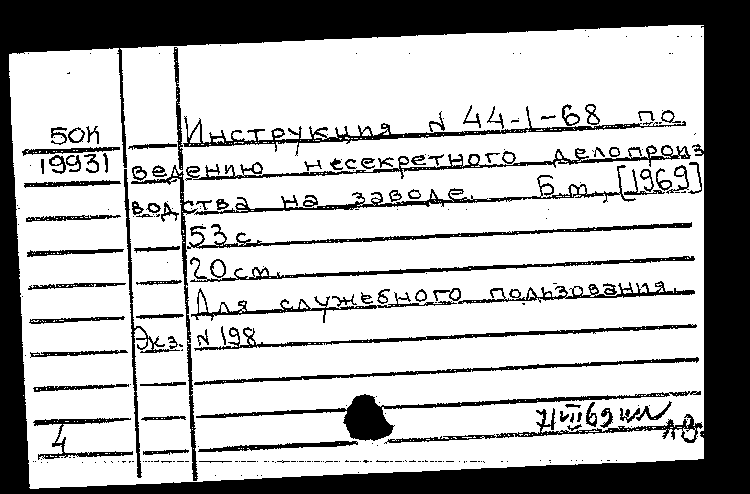 50К
19931
Инструкция N 44-1-68 по
ведению несекретного делопроиз
водства на заводе. Б.м., [1969]
53 с.
20 см.
Для служебного пользования.
Экз. N 198.
4